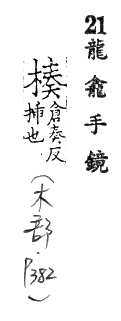 21 龍龕手鏡
楱倉奏反
挿也
(木部.P382)